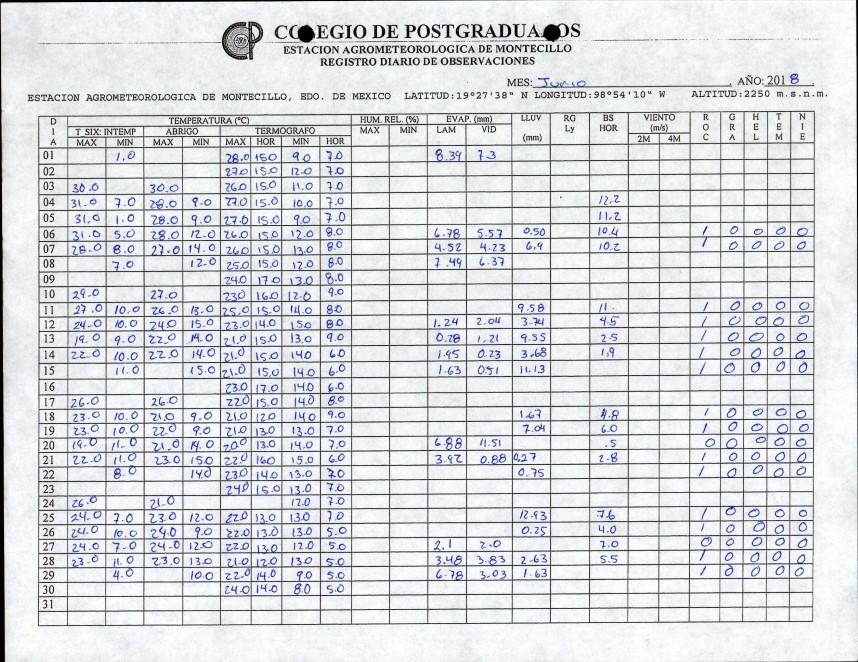 COLEGIO DE POSTGRADUADOS
ESTACION AGROMETEOROLOGICA DE MONTECILLO
REGISTRO DIARIO DE OBSERVACIONES
MES: Junio AÑO: 2018
ESTACION AGROMETEOROLOGICA DE MONTECILLO, EDO. DE MEXICO LATITUD:19°27'38" N LONGITUD:98°54'10" W ALTITUD:2250 m.s.n.m.
DIA TEMPERATURA (°C) HUM. REL. (%) EVAP. (mm) LLUV (mm) RG Ly BS HOR VIENTO (m/s) ROC GRA HEL TEM NIE
T SIX: INTEMP ABRIGO TERMOGRAFO MAX MIN LAM VID 2M 4M
MAX MIN MAX MIN MAX HOR MIN HOR
01 1.0 28.0 15.0 9.0 7.0 8.39 7.3
02 27.0 15.0 12.0 7.0
03 30.0 30.0 26.0 15.0 11.0 7.0
04 31.0 7.0 28.0 9.0 27.0 15.0 10.0 7.0 12.2
05 31.0 1.0 28.0 9.0 27.0 15.0 9.0 7.0 11.2
06 31.0 5.0 28.0 12.0 26.0 15.0 12.0 8.0 6.78 5.57 0.50 10.4 1 0 0 0 0
07 28.0 8.0 27.0 14.0 26.0 15.0 13.0 8.0 4.52 4.23 6.9 10.2 1 0 0 0 0
08 7.0 12.0 25.0 15.0 12.0 8.0 7.49 6.37
09 24.0 17.0 13.0 8.0
10 29.0 27.0 23.0 16.0 12.0 9.0
11 27.0 10.0 26.0 13.0 25.0 15.0 14.0 8.0 9.58 11. 1 0 0 0 0
12 24.0 10.0 24.0 15.0 23.0 14.0 15.0 8.0 1.24 2.04 3.74 4.5 1 0 0 0 0
13 19.0 9.0 22.0 14.0 21.0 15.0 13.0 9.0 0.28 1.21 9.55 2.5 1 0 0 0 0
14 22.0 10.0 22.0 14.0 21.0 15.0 14.0 6.0 1.95 0.23 3.68 1.9 1 0 0 0 0
15 11.0 15.0 21.0 15.0 14.0 6.0 1.63 0.51 11.13 1 0 0 0 0
16 23.0 17.0 14.0 6.0
17 26.0 26.0 22.0 15.0 14.0 8.0
18 23.0 10.0 21.0 9.0 21.0 12.0 14.0 9.0 1.67 4.8 1 0 0 0 0
19 23.0 10.0 22.0 9.0 21.0 13.0 13.0 7.0 7.04 6.0 1 0 0 0 0
20 19.0 11.0 21.0 14.0 20.0 13.0 14.0 7.0 6.88 11.51 .5 0 0 0 0 0
21 22.0 11.0 23.0 15.0 22.0 16.0 15.0 6.0 3.92 0.88 0.27 2.8 1 0 0 0 0
22 8.0 14.0 23.0 14.0 13.0 7.0 0.75 1 0 0 0 0
23 24.0 15.0 13.0 7.0
24 26.0 21.0 12.0 7.0
25 24.0 7.0 23.0 12.0 22.0 13.0 13.0 7.0 12.93 7.6 1 0 0 0 0
26 24.0 10.0 24.0 9.0 22.0 13.0 13.0 5.0 0.25 4.0 1 0 0 0 0
27 24.0 7.0 24.0 12.0 22.0 13.0 12.0 5.0 2.1 2.0 7.0 0 0 0 0 0
28 23.0 11.0 23.0 13.0 21.0 12.0 13.0 5.0 3.48 3.83 2.63 5.5 1 0 0 0 0
29 4.0 10.0 22.0 14.0 9.0 5.0 6.78 3.03 1.63 1 0 0 0 0
30 24.0 14.0 8.0 5.0
31